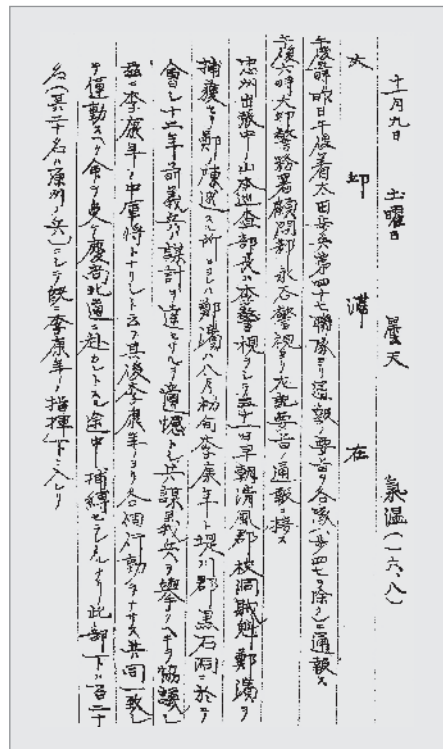 十一月九日 土曜日 曇天 氣温(一六、八)
大邱滞在
午後時昨日午後着太田安奥第四十七聯隊ヨリ通報ノ要旨ヲ各隊(步四七ヲ除ク)ニ通報ス
午後六時大邱警務署顧問部永谷警視ヨリ左記要旨ノ通報ニ接ス
忠州出張中ノ山本巡査部長ハ李警視ヲシテ三十一日早朝清風郡校洞賊魁鄭濱ヲ
捕獲セリ鄭ノ陳述スル所ニヨレハ鄭濱ハ八月初旬李康年ト堤川郡黒石洞ニ於テ
會シ十二年前義兵ノ謀計ヲ達セサルヲ遺憾トシ共謀義兵ヲ擧クヘキヲ協議シ
茲ニ李康年ノ中軍将トナリシト云フ其後李康年ヨリ各個行動ヲナサス共同一致シ
テ運動スヘク命ヲ受ケ慶尚北道ニ赴カントスル途中捕縛セラレタルナリ此部下ハ百二十
名(其二十名ハ原州ノ兵)ニシテ既ニ李康年ノ指揮下ニ入レリ